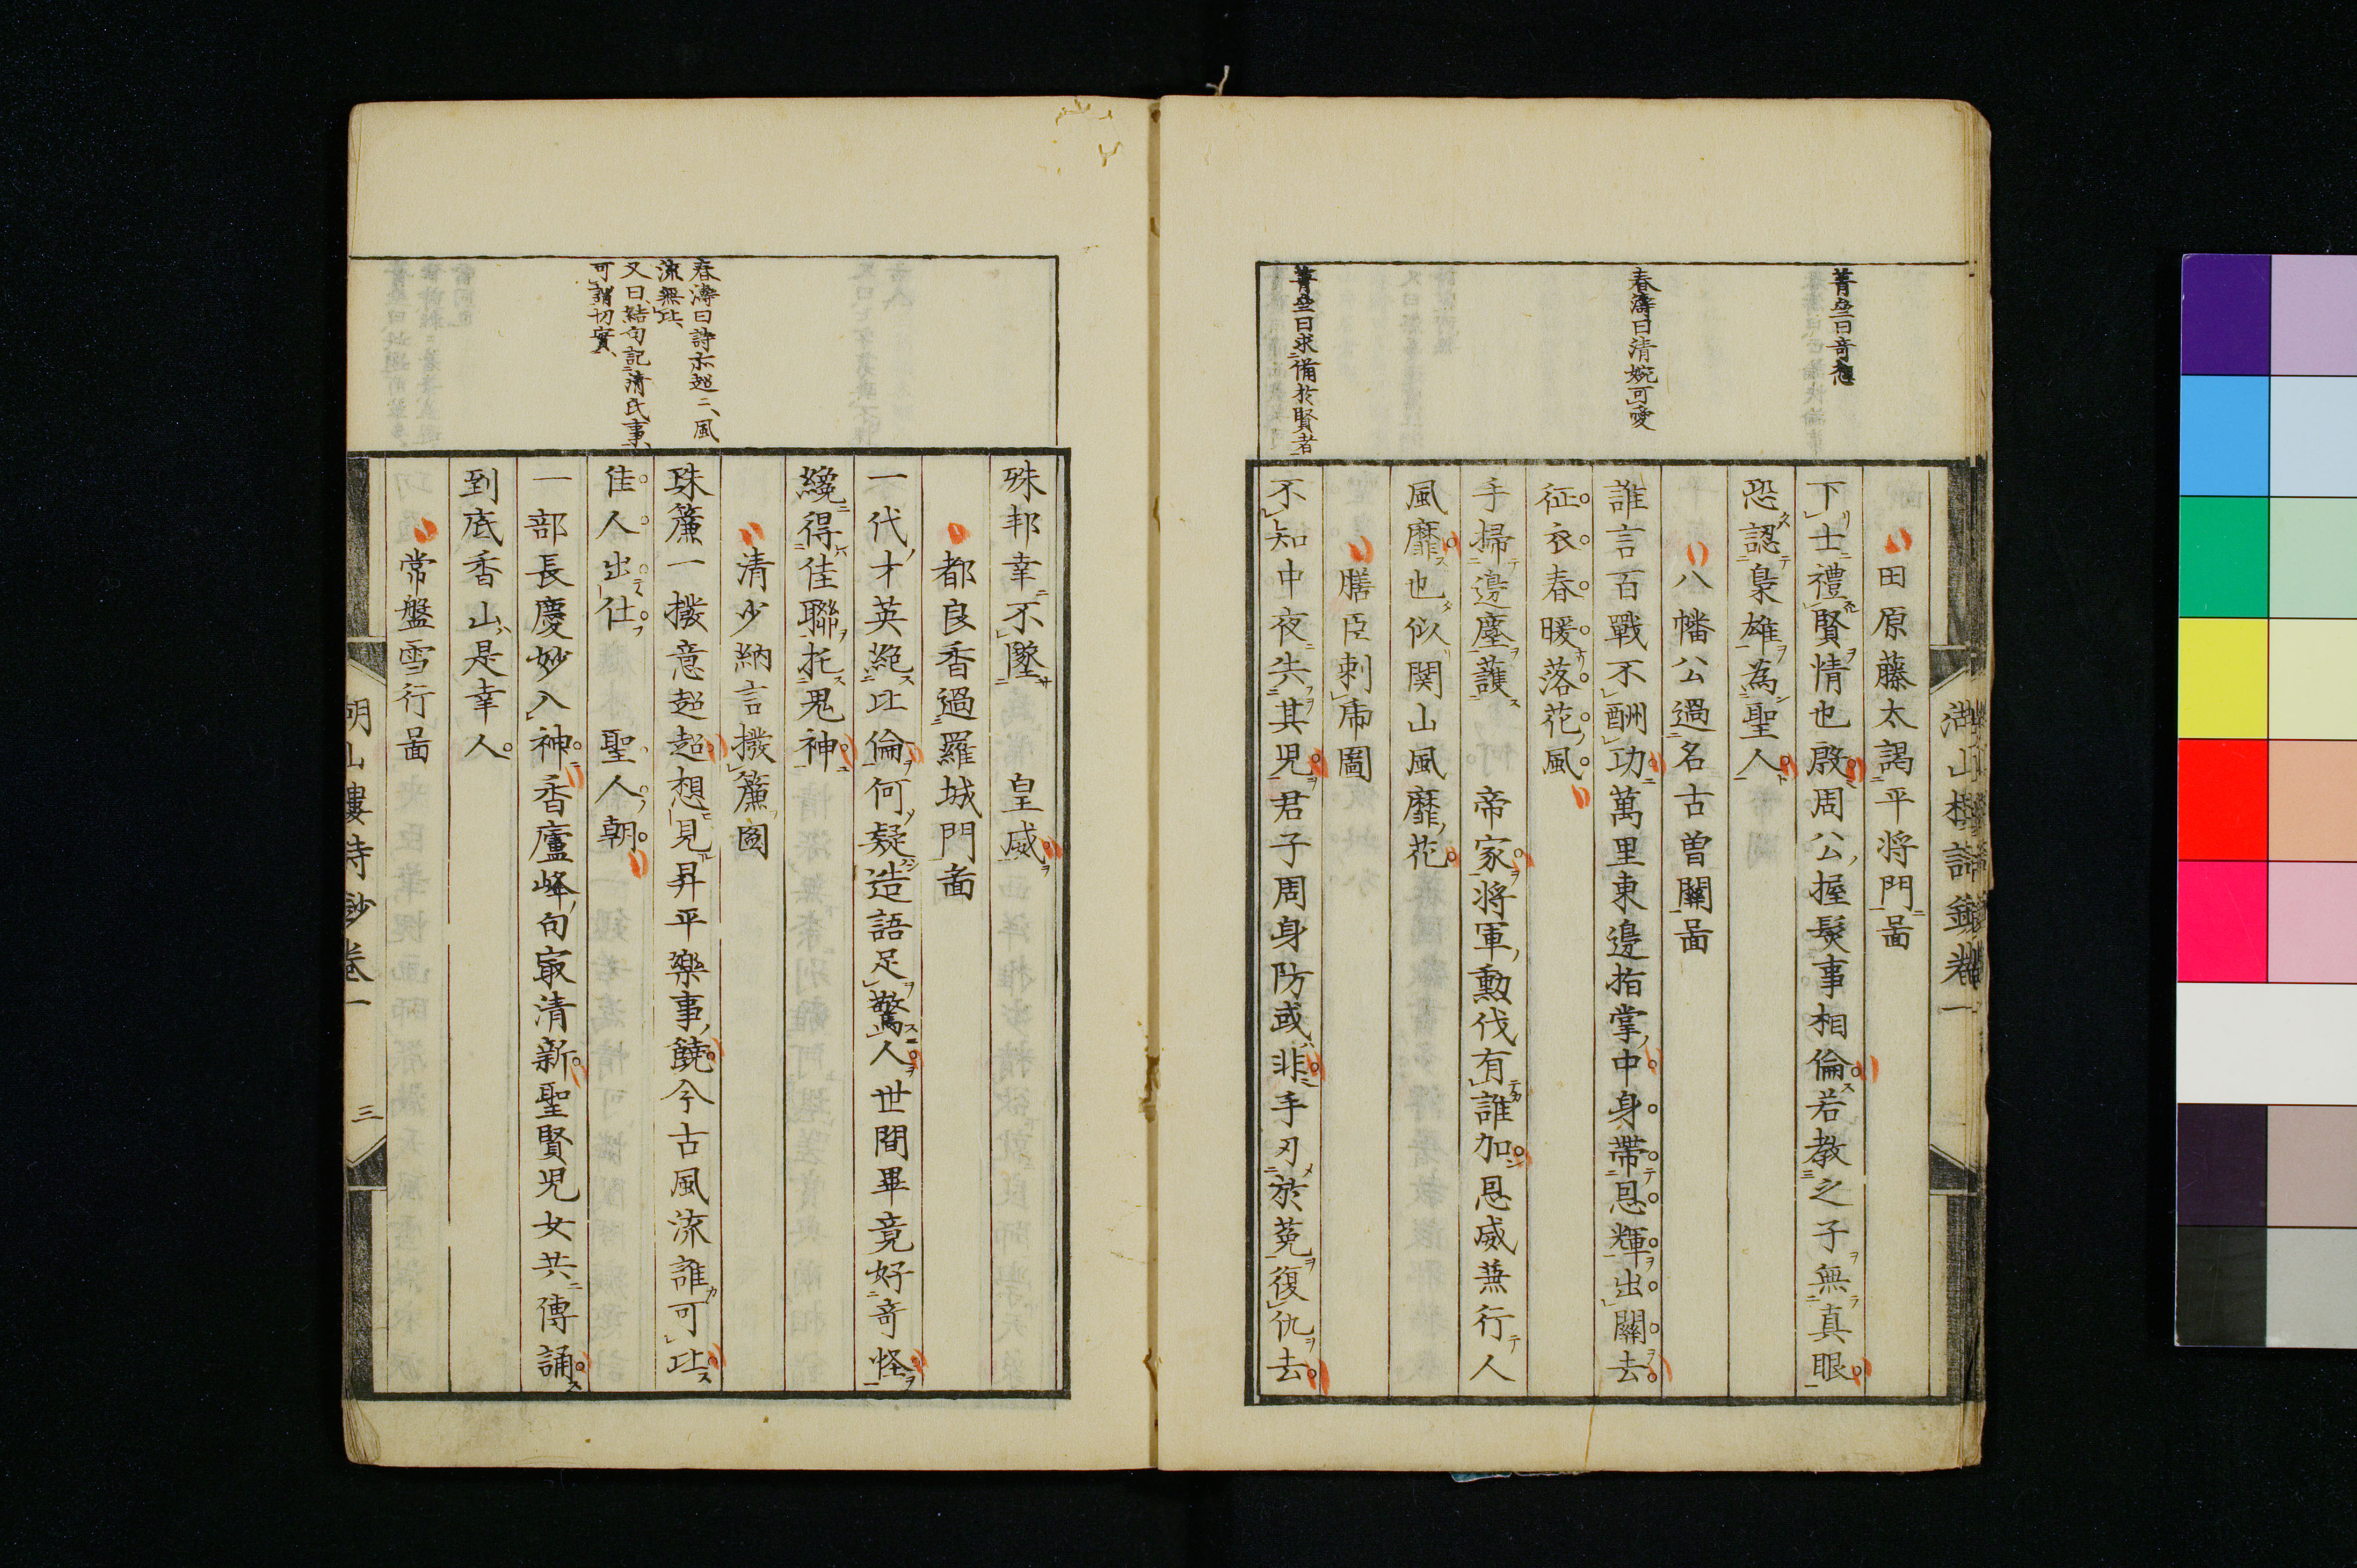 湖山樓詩鈔卷一
田原藤太謁平將門啚
下士禮賢情也殷周公握髮事相倫若教之子無真眼
恐認梟雄為聖人
菁埜曰奇想
八幡公過名古曽關啚
誰言百戰不酬功萬里東邊指掌中身帶恩輝出關去
征衣春暖落花風
春濤曰清婉可愛
手掃邊塵護帝家將軍勳伐有誰加恩威兼行人
風靡也似関山風靡花
膳臣刺乕圖
不知中夜失其児君子周身防或非手刃於菟復仇去
菁埜曰求備於賢者
殊邦幸不墜皇威
都良香過羅城門啚
一代才英絶比倫何疑造語足驚人世間畢竟好奇怪
纔得佳聯托鬼神
清少納言撥簾圖
珠簾一撥意超超想見昇平樂事饒今古風流誰可比
佳人出仕聖人朝
春濤曰詩亦超〻風
流無比
又曰結句記清氏事
可謂切實
一部長慶妙入神香廬峰句冣清新聖賢児女共傳誦
到底香山是幸人
常盤雪行啚
湖山樓詩鈔卷一
三